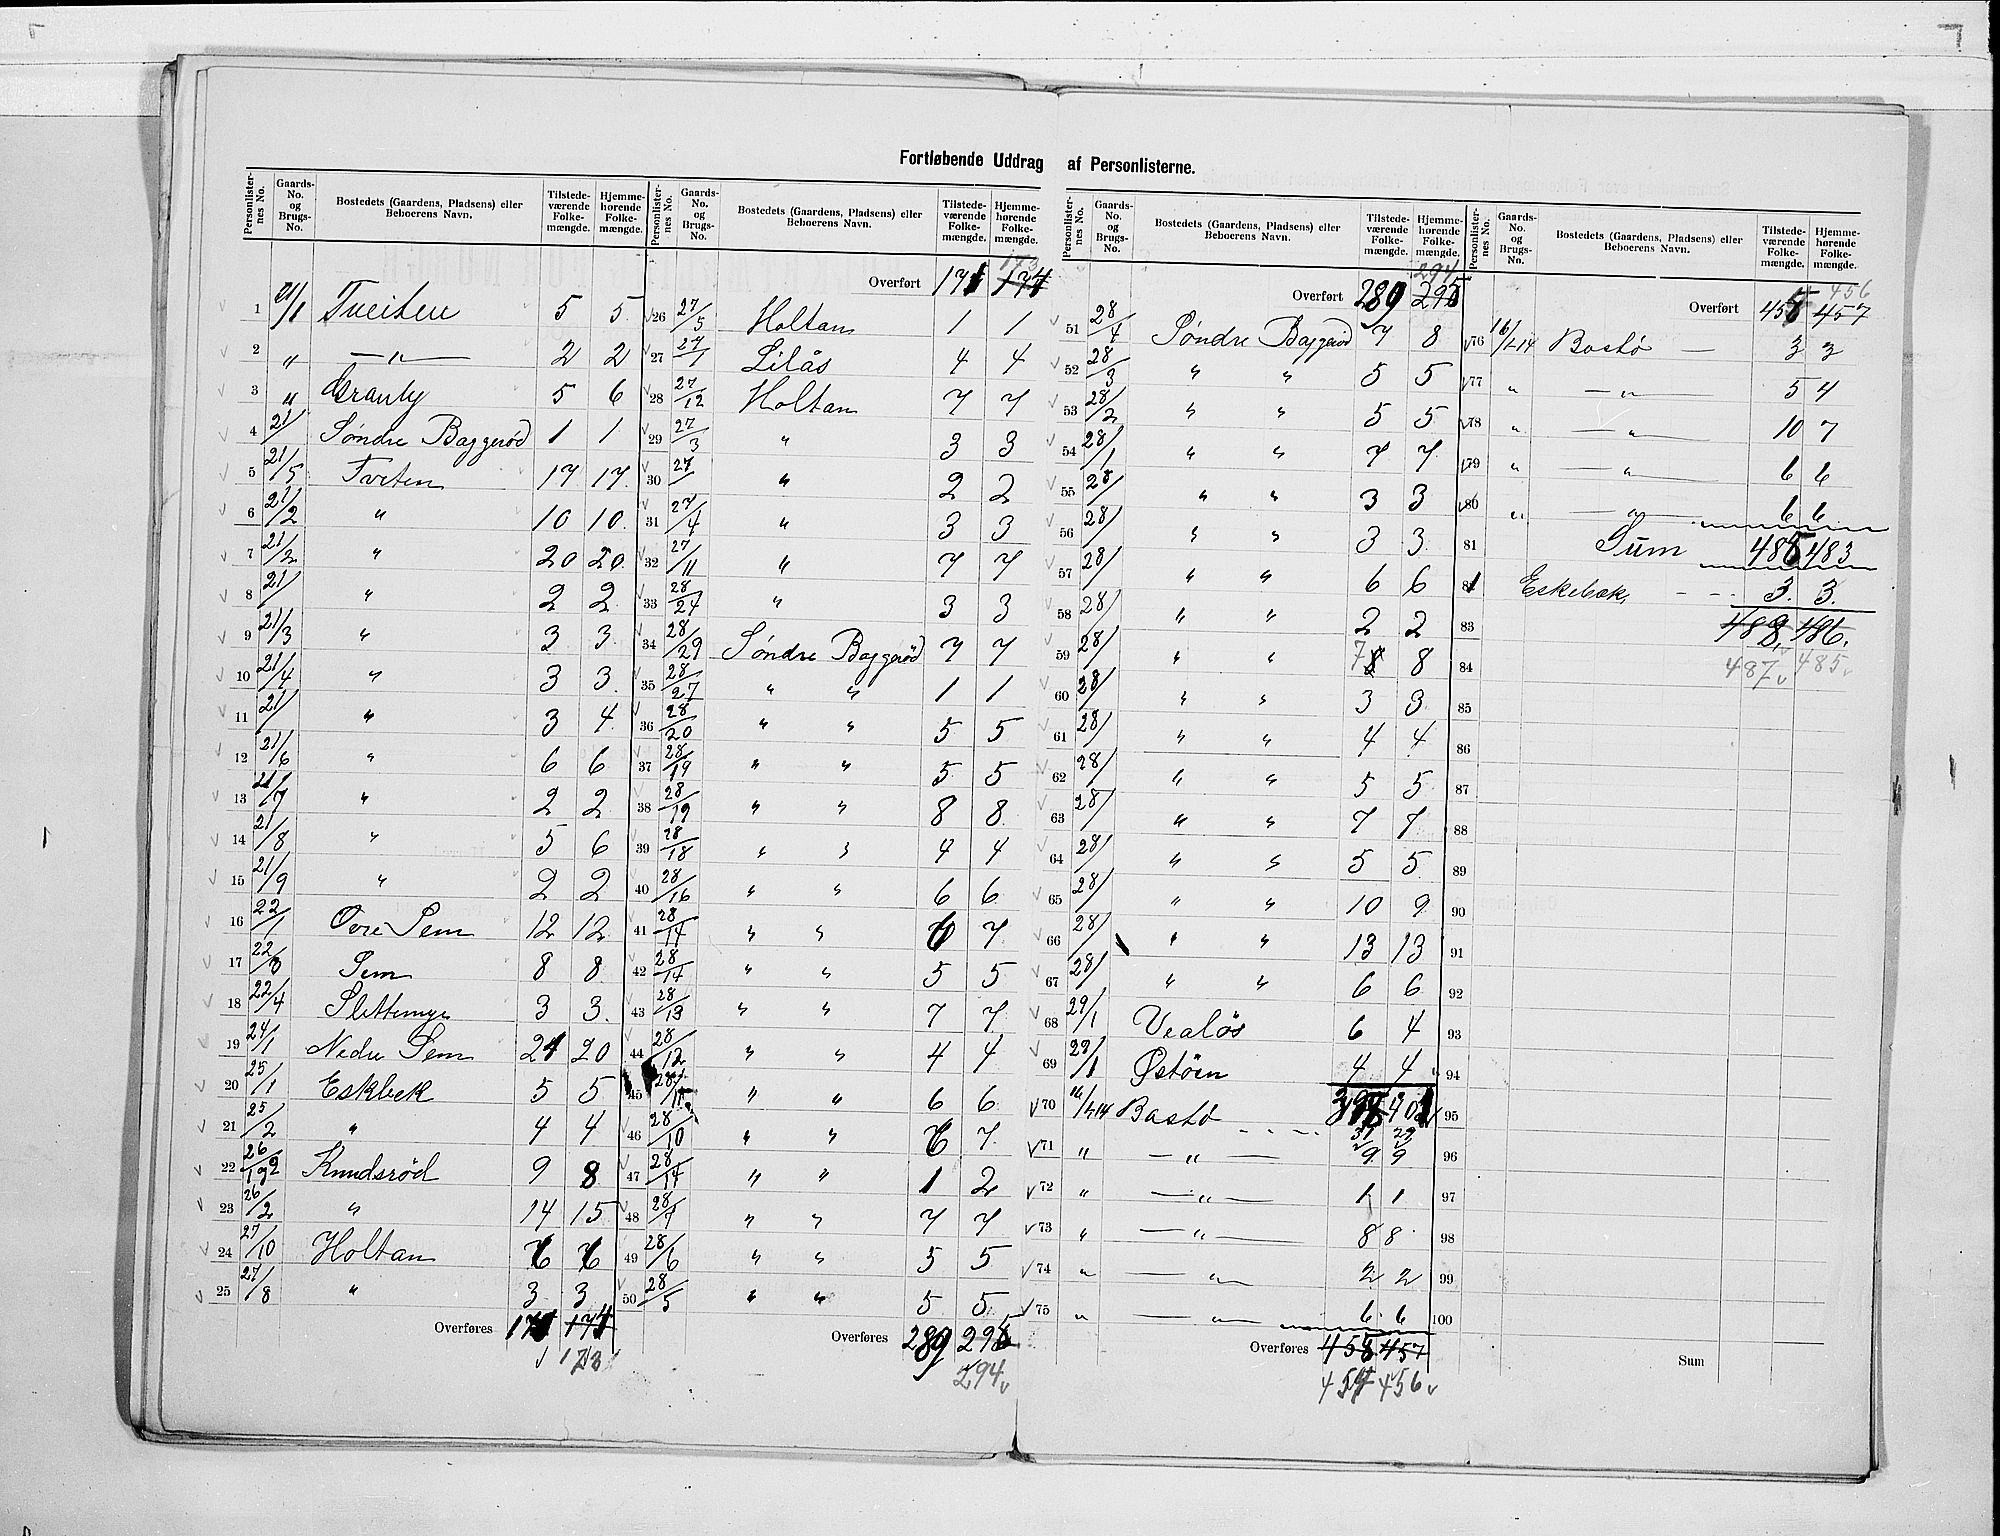 Fortløbende Uddrag af Personlisterne.
Personlister-nes No. | Gaards-No. og Brugs-No. | Bostedets (Gaardens, Pladsens) eller Beboerens Navn. | Tilstede-værende Folke-mængde. | Hjemme-hørende Folke-mængde.
1 21/1 Tveiten 5 5
2 " —"— 2 2
3 " Granly 5 6
4 21/ Søndre Baggerød 1 1
5 21/5 Tveten 17 17
6 21/2 " 10 10
7 21/2 " 20 20
8 21/ " 2 2
9 21/3 " 3 3
10 21/4 " 3 3
11 21/ " 3 4
12 21/6 " 6 6
13 21/7 " 2 2
14 21/8 " 5 6
15 21/9 " 2 2
16 22/1 Øvre Sem 12 12
17 22/3 Sem 8 8
18 22/4 Slettemyr 3 3
19 24/1 Nedre Sem 21 20
20 25/1 Eskbek 5 5
21 25/2 " 4 4
22 26/ Knudsrød 9 8
23 26/2 " 14 15
24 27/10 Holtan
25 27/8 " 3 3
Overføres 171 174
173
Personlister-nes No. | Gaards-No. og Brugs-No. | Bostedets (Gaardens, Pladsens) eller Beboerens Navn. | Tilstede-værende Folke-mængde. | Hjemme-hørende Folke-mængde.
173
Overført 171 174
26 27/5 Holtan 1 1
27 27/1 Lilås 4 4
28 27/12 Holtan 7 7
29 27/3 " 3 3
30 27/ " 2 2
31 27/4 " 3 3
32 27/11 " 7 7
33 28/24 " 3 3
34 28/29 Søndre Baggerød 7 7
35 28/27 " " 1 1
36 28/20 " " 5 5
37 28/19 " " 5 5
38 28/19 " " 8 8
39 28/18 " " 4 4
40 28/16 " " 6 6
41 28/14 " " 6 7
42 28/14 " " 5 5
43 28/13 " " 7 7
44 28/12 " " 4 4
45 28/11 " " 6 6
46 28/10 " " 6 7
47 28/14 " " 1 2
48 28/7 " " 7 7
49 28/6 " " 5 5
50 28/5 " " 5 5
Overføres 289 295
294
Personlister-nes No. | Gaards-No. og Brugs-No. | Bostedets (Gaardens, Pladsens) eller Beboerens Navn. | Tilstede-værende Folke-mængde. | Hjemme-hørende Folke-mængde.
294
Overført 289 295
51 28/4 Søndre Baggerød 7 8
52 28/3 " " 5 5
53 28/2 " " 5 5
54 28/1 " " 7 7
55 28/ " " 3 3
56 28/ " " 3 3
57 28/ " " 6 6
58 28/ " " 2 2
59 28/ " " 7 8 8
60 28/ " " 3 3
61 28/ " " 4 4
62 28/ " " 5 5
63 28/ " " 7 7
64 28/ " " 5 5
65 28/ " " 10 9
66 28/ " " 13 13
67 28/ " " 6 6
68 29/1 Vealös 6 4
69 29/1 Østöen 4 4
70 16/1-14 Bastø 398 401
31 29
71 " —"— 9 9
72 " —"— 1 1
73 " —"— 8 8
74 " —"— 2 2
75 " —"— 6 6
Overføres 458 457
457 456
Personlister-nes No. | Gaards-No. og Brugs-No. | Bostedets (Gaardens, Pladsens) eller Beboerens Navn. | Tilstede-værende Folke-mængde. | Hjemme-hørende Folke-mængde.
456
Overført 458 457
76 16/1-14 Bastø — 3 3
77 " —"— 5 4
78 " —"— 10 7
79 " —"— 6 6
80 " —"— 6 6
81 Sum 485 483
Eskebæk 3. 3.
83 488, 486.
84 487 485
85
86
87
88
89
90
91
92
93
94
95
96
97
98
99
100
Sum